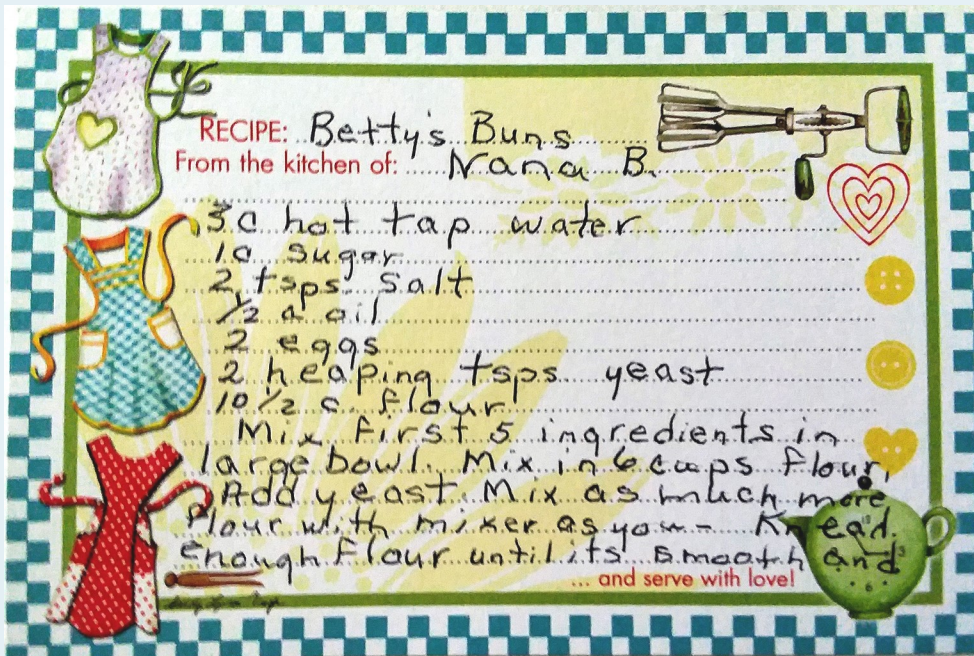 RECIPE: Betty's Buns
From the kitchen of: Nana B.
3c hot tap water
1c sugar
2 tsps salt
1/2 c oil
2 eggs
2 heaping tsps yeast
10 1/2 c flour
Mix first 5 ingredients in
large bowl. Mix in 6 cups flour,
Add yeast. Mix as much more
flour with mixer as you - Knead
enough flour until its smooth and
... and serve with love!